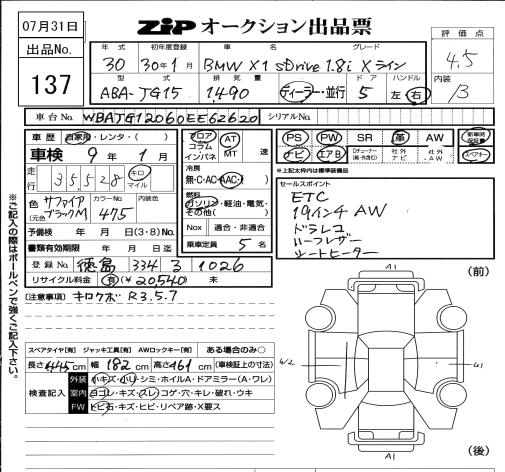 07月31日
ZIP オークション出品票
出品No. 137
年式 初年度登録 車名 グレード
30 30年1月 BMW X1 sDrive 1.8i Xライン
型式 排気量 ドア ハンドル
ABA-JG15 1,490 ディーラー・並行 5 左 右
評価点 4.5
内装 B
車台No. WBAJG12060EE62620 シリアルNo.
車歴 自家用・レンタ・( )
車検 9年1月
走行 35,528 キロ マイル
色(元色) サファイアブラックM カラーNo. 475 内装色
予備検 年 月 日(3・8)No.
書類有効期限 年 月 日迄
登録No. 徳島 334 ろ 1026
リサイクル料金 有(¥20,540) 未
フロア コラム インパネ AT MT 速
冷房 無・C・AC・AAC
燃料 ガソリン・軽油・電気・その他( )
Nox 適合・非適合
乗車定員 5 名
PS PW SR 革 AW 新車時保証書
ナビ エアB Dチューナー(純・外含む) 社外ナビ 社外AW 取説
*上記太枠内は標準装備品
セールスポイント
ETC
19インチAW
ドラレコ
ハーフレザー
シートヒーター
[注意事項] キロクボ R3.5.7
スペアタイヤ[有] ジャッキ工具[有] AWロックキー[有] ある場合のみ○
長さ445cm 幅182cm 高さ161cm (車検証上の寸法)
検査記入
外装 小キズ・小U・シミ・ホイルA・ドアミラー(A・ワレ)
室内 白コレ・キズ・スレ・コゲ・穴・キレ・破れ・ウキ
FW トビ石・キズ・ヒビ・リペア跡・X要ス
※ご記入の際はボールペンで強くご記入下さい。
A1
(前)
W2
A1
(後)